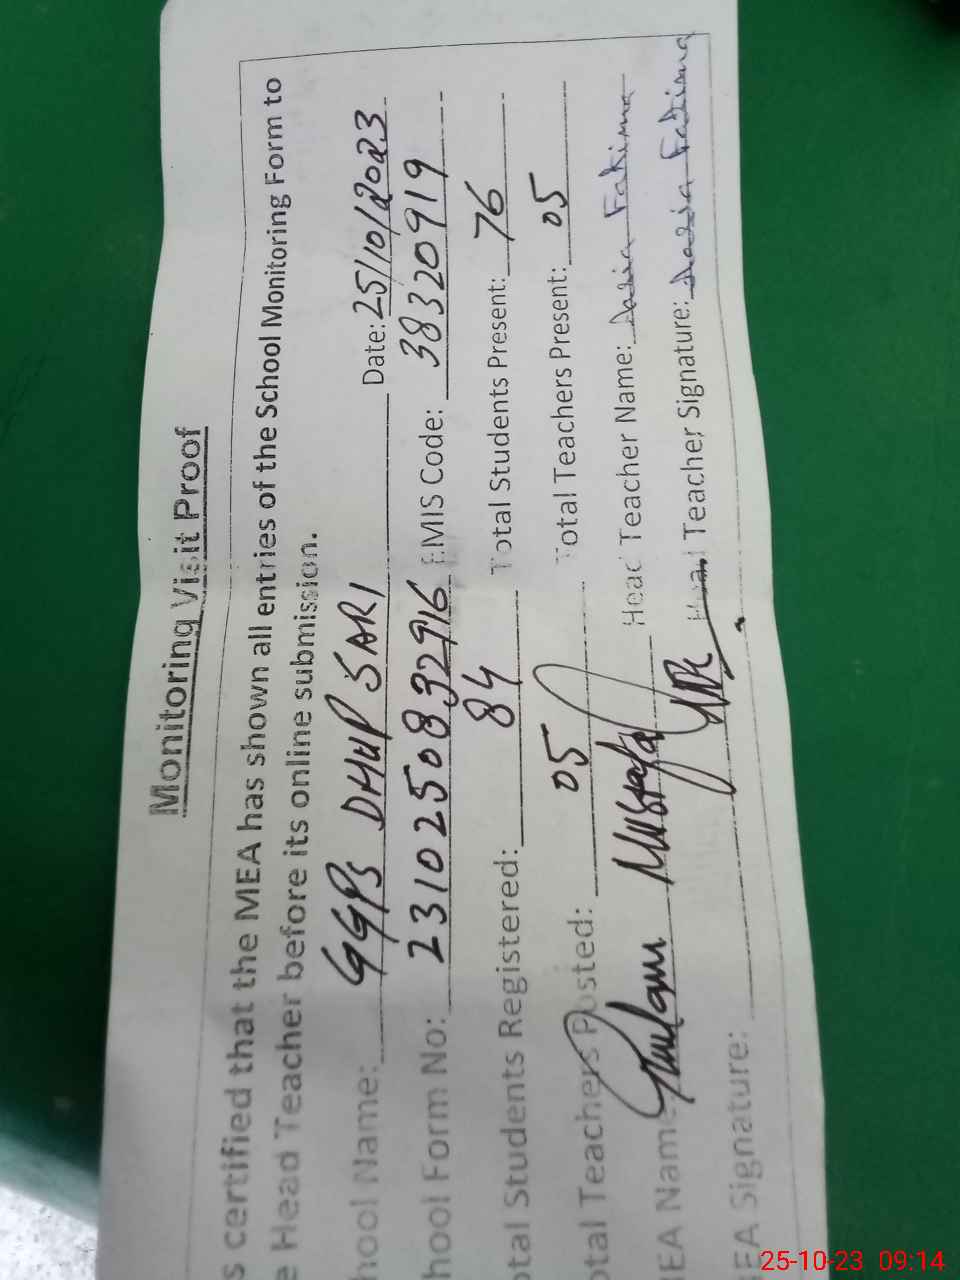 Monitoring Visit Proof
s certified that the MEA has shown all entries of the School Monitoring Form to
e Head Teacher before its online submission.
hool Name: GGPS DHUP SARI Date: 25/10/2023
hool Form No: 23102508332916 EMIS Code: 38320919
otal Students Registered: 84 Total Students Present: 76
otal Teachers Posted: 05 Total Teachers Present: 05
MEA Name: Ghulam Mustafa Head Teacher Name: Fatima
EA Signature: Head Teacher Signature: Fatima
25-10-23 09:14